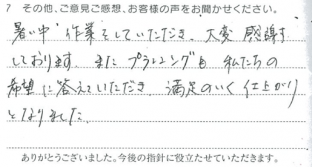 7 その他、ご意見ご感想、お客様の声をお聞かせください。
暑い中 作業をしていただき、大変 感謝
しております。またプランニングも 私たちの
希望に答えていただき、満足のいく仕上がり
となりました。
ありがとうございました。今後の指針に役立たせていただきます。